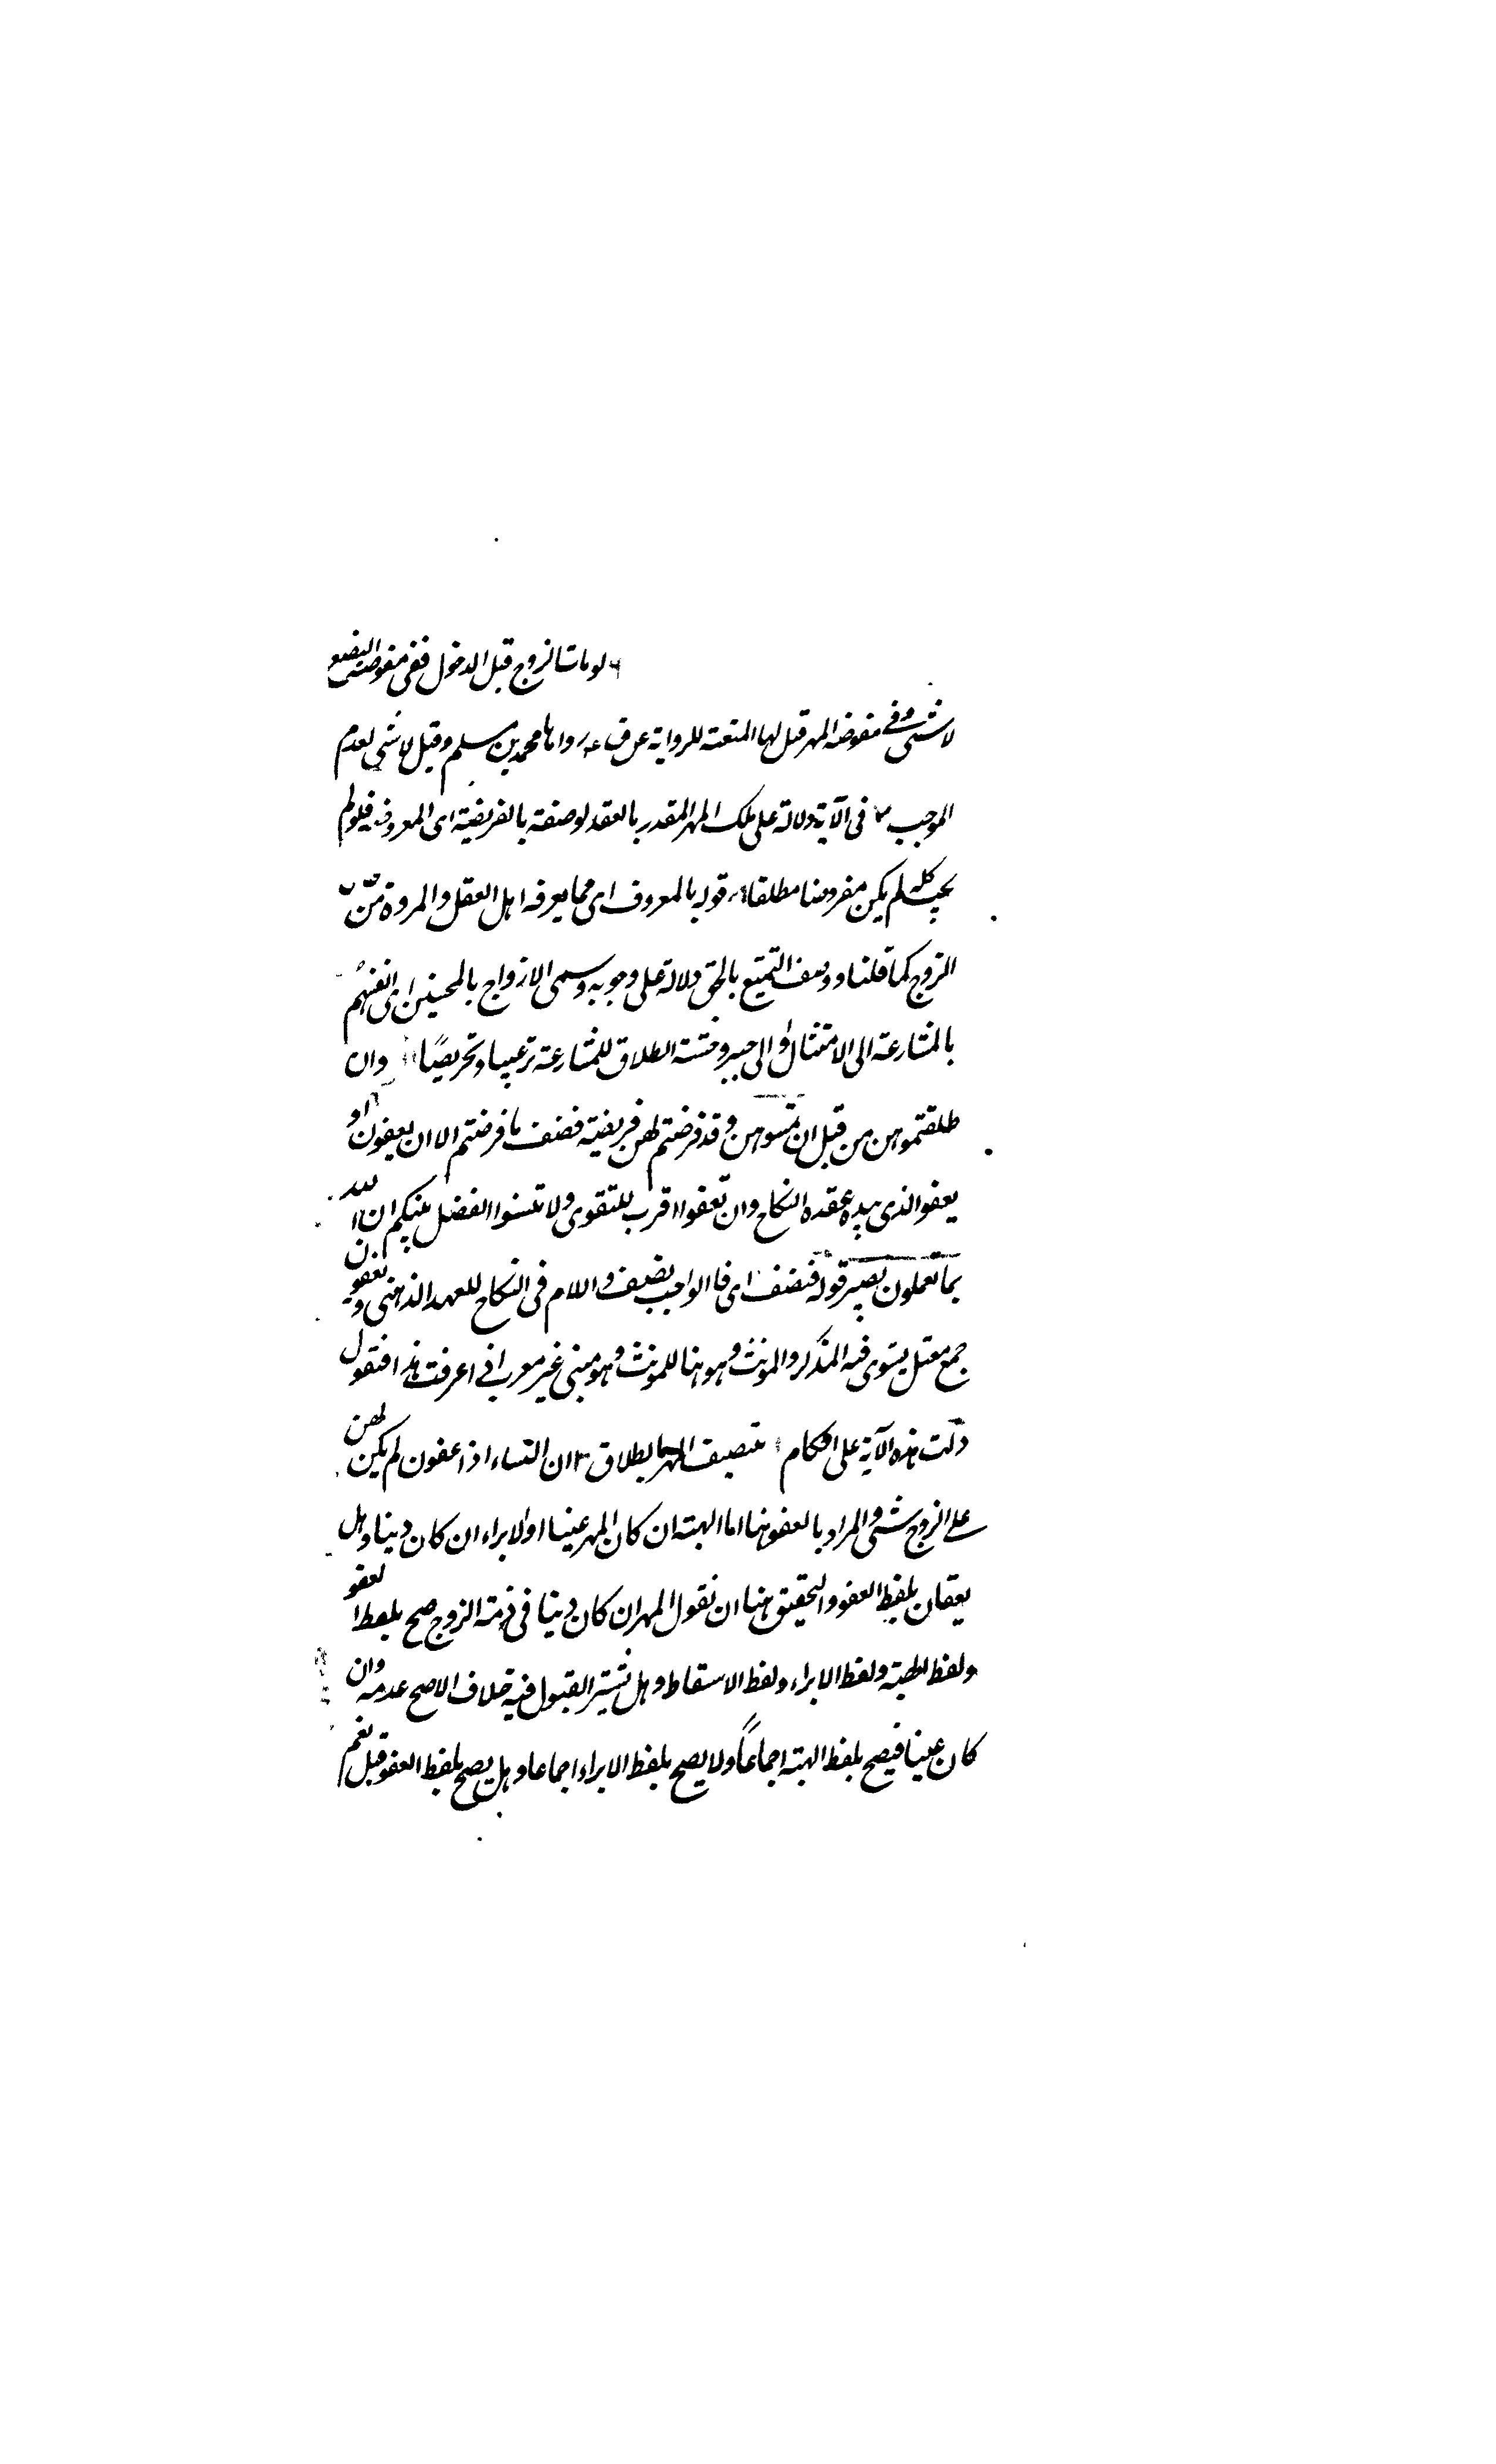 ٦ لو مات الزوج قبل الدخول ففي مفوضة البضع
لا شئ وفي مفوضة المهر قيل لها المتعة للرواية عن ق ع رواها محمد بن مسلم وقيل لا شئ لعدم
الموجب ٧ في الآية دلالة على ملك المهر المقدر بالعقد لوصفه بالفريضة اى المعروف فلو لم
يجب كله لم يكن مفروضا مطلقا قوله بالمعروف اى مما يعرفه اهل العقل والمروة من
الزوج كما قلنا ووصف التمتيع بالحق دلالة على وجوبه وسمى الازواج بالمحسنين اى انفسهم
بالمشارعة الى الامتثال والى خير وخشية الطلاق للمشارعة ترغيبا وتحريصًا وان
طلقتموهن من قبل ان تمسوهن وقد فرضتم لهن فريضة فنصف ما فرضتم الا ان يعفون او
يعفو الذى بيده عقدة النكاح وان تعفوا اقرب للتقوى ولا تنسوا الفضل بينكم ان الله
بما تعملون بصير قوله فنصف اى فالواجب نصف واللام في النكاح للعهد الذهنى ويعفون
جمع معتل يستوى فيه المذكر والمونث وهو هنا للمونث وهو مبنى غير معرب اذا عرفت هذا فنقول
دلت هذه الآية على احكام ١ تنصيف المهر بالطلاق ٢ ان النساء اذا عفون لم يكن لهن
على الزوج شئ والمراد بالعفو هنا اما الهبة ان كان المهر عينا او الابراء ان كان دينا وهل
يقعان بلفظ العفو والتحقيق هنا ان نقول المهر ان كان دينا في ذمة الزوج صح بلفظ العفو
ولفظ الهبة ولفظ الابراء ولفظ الاسقاط وهل يشترط القبول فيه خلاف الاصح عدمه وان
كان عينا فيصح بلفظ الهبة اجماعًا ولا يصح بلفظ الابراء اجماعا وهل يصح بلفظ العفو قيل نعم